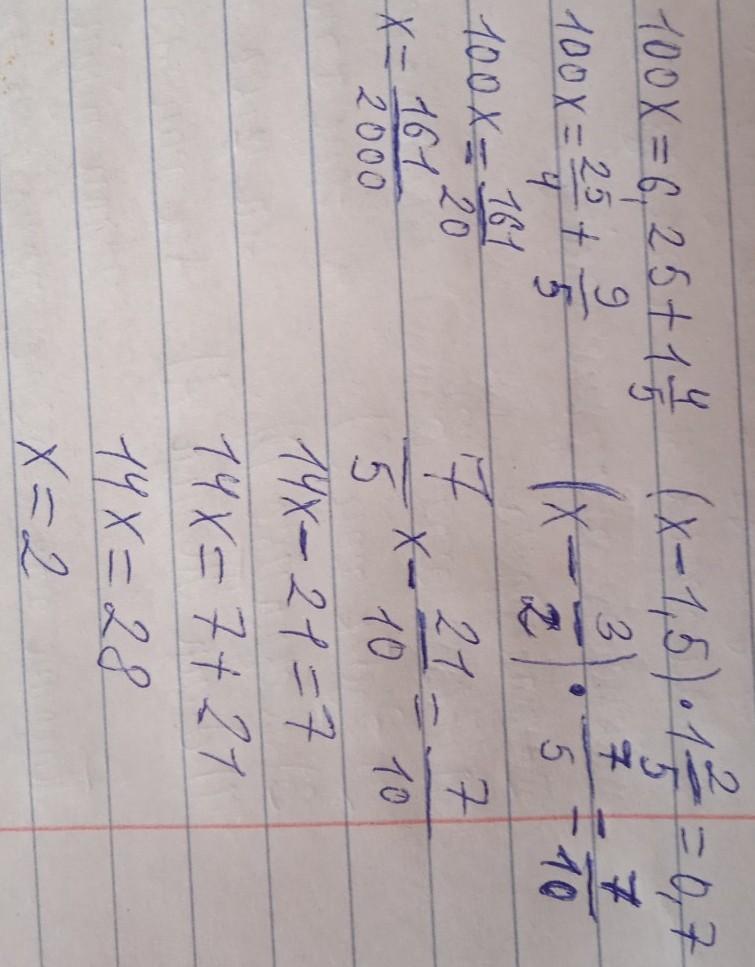 100x = 6,25 + 1 4/5
100x = 25/4 + 9/5
100x = 161/20
x = 161/2000
(x - 1,5) · 1 2/5 = 0,7
(x - 3/2) · 7/5 = 7/10
7/5 x - 21/10 = 7/10
14x - 21 = 7
14x = 7 + 21
14x = 28
x = 2